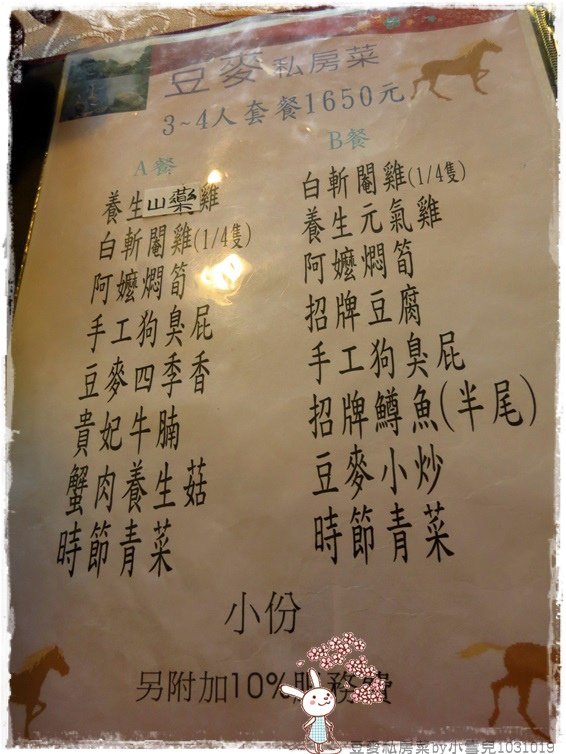 豆麥私房菜
3~4人套餐1650元
A餐
養生山藥雞
白斬閹雞(1/4隻)
阿嬤燜筍
手工狗臭屁
豆麥四季香
貴妃牛腩
蟹肉養生菇
時節青菜
B餐
白斬閹雞(1/4隻)
養生元氣雞
阿嬤燜筍
招牌豆腐
手工狗臭屁
招牌鱒魚(半尾)
豆麥小炒
時節青菜
小份
另附加10%服務費
豆麥私房菜by小雪兒1031019